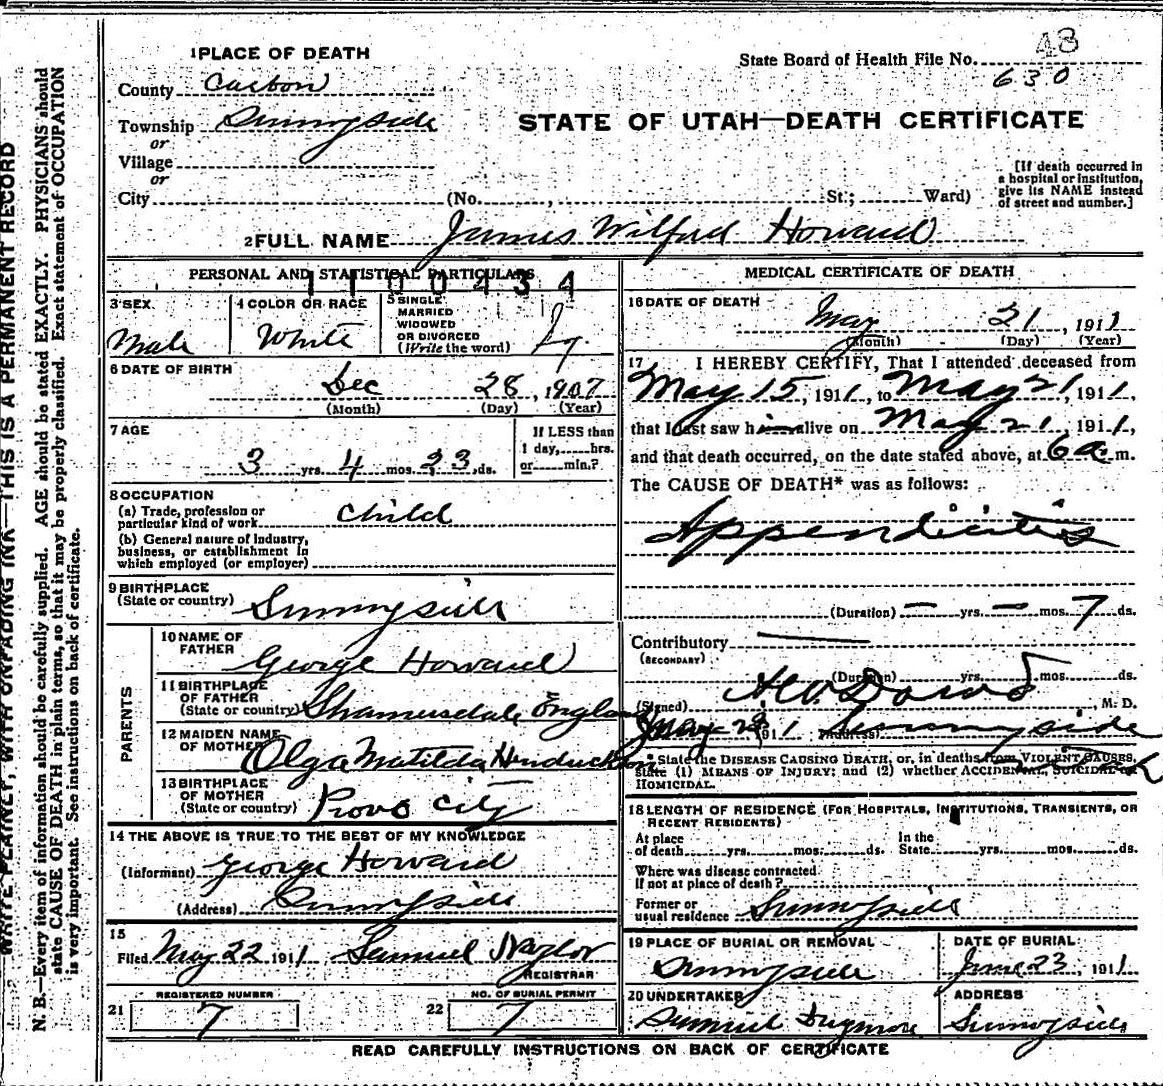 WRITE PLAINLY, WITH UNFADING INK—THIS IS A PERMANENT RECORD
N. B.—Every item of information should be carefully supplied. AGE should be stated EXACTLY. PHYSICIANS should
state CAUSE OF DEATH in plain terms, so that it may be properly classified. Exact statement of OCCUPATION
is very important. See instructions on back of certificate.
1 PLACE OF DEATH
County Carbon
Township Sunnyside
or
Village
or
City (No. , St.; Ward)
State Board of Health File No. 43
630
STATE OF UTAH—DEATH CERTIFICATE
[If death occurred in
a hospital or institution,
give its NAME instead
of street and number.]
2 FULL NAME James Wilford Howard
PERSONAL AND STATISTICAL PARTICULARS
1100434
3 SEX
Male
4 COLOR OR RACE
White
5 SINGLE
MARRIED
WIDOWED
OR DIVORCED
(Write the word)
6 DATE OF BIRTH
Dec 28, 1907
(Month) (Day) (Year)
7 AGE
3 yrs. 4 mos. 23 ds.
If LESS than
1 day, hrs.
or min.?
8 OCCUPATION
(a) Trade, profession or
particular kind of work Child
(b) General nature of industry,
business, or establishment in
which employed (or employer)
9 BIRTHPLACE
(State or country) Sunnyside
PARENTS
10 NAME OF
FATHER
George Howard
11 BIRTHPLACE
OF FATHER
(State or country) England
12 MAIDEN NAME
OF MOTHER
Olga Matilda
13 BIRTHPLACE
OF MOTHER
(State or country) Provo City
14 THE ABOVE IS TRUE TO THE BEST OF MY KNOWLEDGE
(Informant) George Howard
(Address) Sunnyside
15
Filed May 22 1911 Samuel Naylor
REGISTRAR
21 REGISTERED NUMBER
7
22 NO. OF BURIAL PERMIT
7
MEDICAL CERTIFICATE OF DEATH
16 DATE OF DEATH
May 21, 1911
(Month) (Day) (Year)
17 I HEREBY CERTIFY, That I attended deceased from
May 15, 1911, to May 21, 1911,
that I last saw him alive on May 21, 1911,
and that death occurred, on the date stated above, at 6 a. m.
The CAUSE OF DEATH* was as follows:
Appendicitis
(Duration) — yrs. — mos. 7 ds.
Contributory
(SECONDARY)
(Duration) yrs. mos. ds.
(Signed) M. D.
May 1911 (Address) Sunnyside
Utah
* State the DISEASE CAUSING DEATH, or, in deaths from VIOLENT CAUSES,
state (1) MEANS OF INJURY; and (2) whether ACCIDENTAL, SUICIDAL or
HOMICIDAL.
18 LENGTH OF RESIDENCE (FOR HOSPITALS, INSTITUTIONS, TRANSIENTS, OR
RECENT RESIDENTS)
At place
of death yrs. mos. ds.
In the
State yrs. mos. ds.
Where was disease contracted
If not at place of death?
Former or
usual residence Sunnyside
19 PLACE OF BURIAL OR REMOVAL
Sunnyside
DATE OF BURIAL
June 23, 1911
20 UNDERTAKER
Samuel
ADDRESS
Sunnyside
READ CAREFULLY INSTRUCTIONS ON BACK OF CERTIFICATE